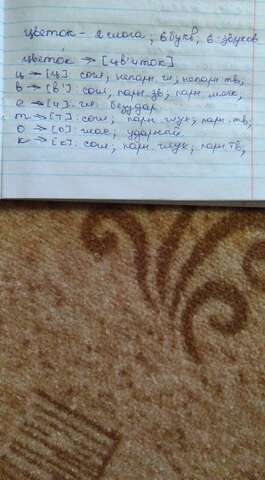 цветок - 2 слога, 6 букв, 6 звуков
цветок → [цв'иток]
ц → [ц]: согл, непарн. гл, непарн тв,
в → [в']: согл, парн. зв, парн. мягк,
е → [и]: гл. безудар
т → [т]: согл, парн глух, парн. тв,
о → [о]: глас, ударный
к → [к]: согл, парн. глух, парн тв,